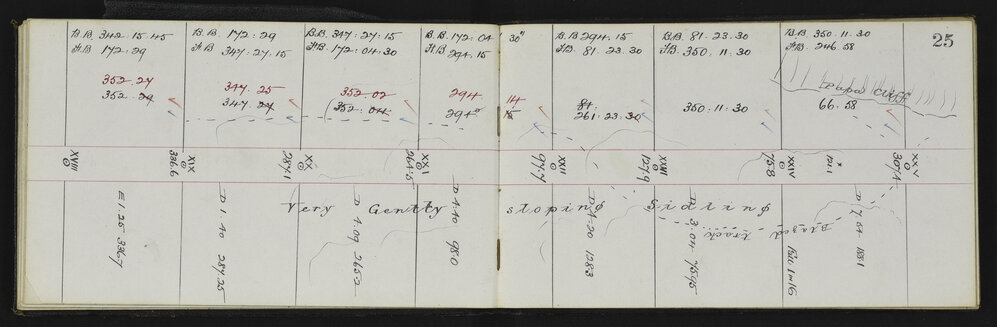 25
B.B. 342.15.45
F.B. 172.29
352.27
352.29
B.B. 172:29
F.B. 347:27.15
347.25
347.27
B.B. 347:27:15
F.B. 172:04.30
352.02
352:04
B.B. 172:04 30"
F.B. 294.15
294. 14
294° 15
B.B. 294.15
F.B. 81.23.30
81.
261.23.30
B.B. 81.23.30
F.B. 350.11.30
350:11.30
B.B. 350.11.30
F.B. 246.58
Papa Cliff
66.58
XVIII
XIX
336.6
XX
287.1
XXI
264.5
XXII
97.4
XXIII
127.9
XXIV
75.8
121.1
XXV
307.4
Very Gently sloping Sidling
Blazed track
E 1.25 336.7
D 1.40 287.25
D 4.09 265.2
D 4.40 98.0
D 4.20 128.3
D 3.04 75.95
Rise 1 in 16
D 7.54 155.1